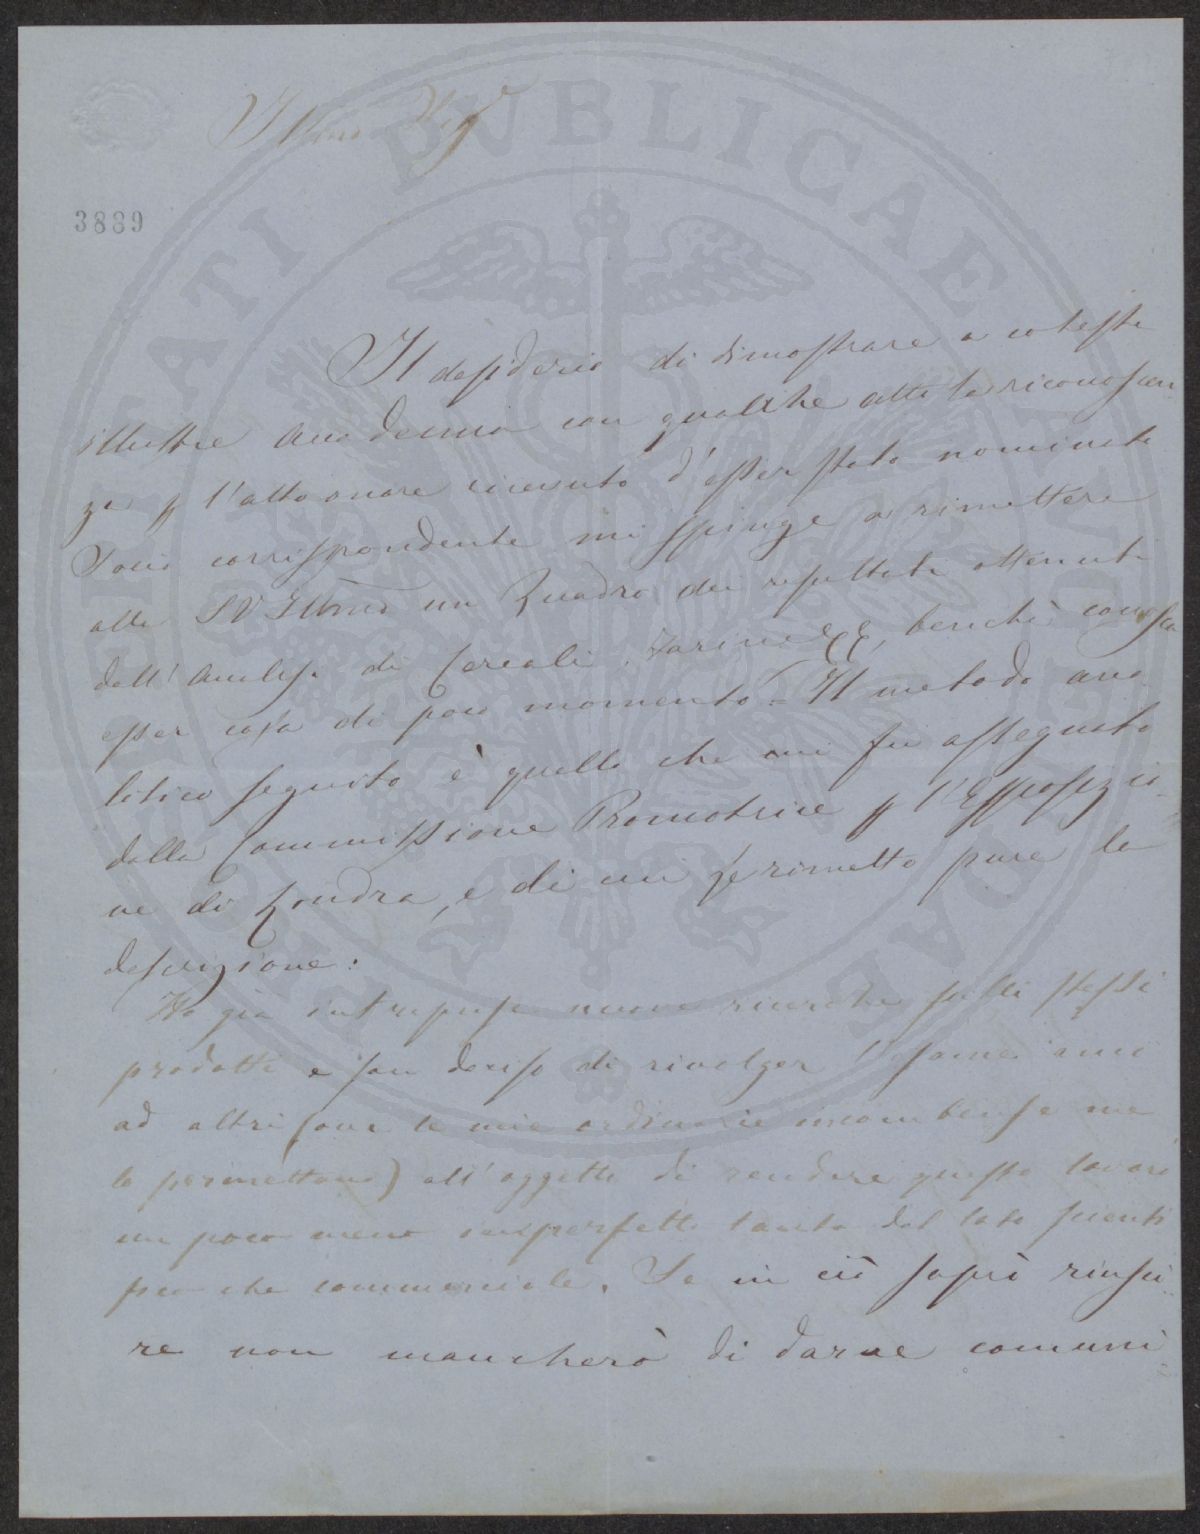 Illmo Sigre
3889
Il desiderio di dimostrare a cotesta
illustre Accademia con qualche atto la riconoscen
za p l'alto onore ricevuto d'esser stato nominato
Socio corrispondente mi spinge a rimettere
alla SV Illma un Quadro dei resultati ottenuti
dall'Analisi di Cereali, Farine &&, benchè conosca
esser cosa di poco momento. = Il metodo ana
litico seguito è quello che mi fu assegnato
dalla Commissione Promotrice p l'Esposizio
ne di Londra, e di cui Le rimetto pure la
descrizione:
Ho già intrapuse nuove ricerche sulli stessi
prodotti e son deciso di rivolger l'esame anci
ad altri (ove le mie ordinarie incombense me
lo permettano) all'oggetto di rendere questo lavoro
un poco meno imperfetto tanto dal lato scienti
fico che commerciale. Se in ciò saprò riusci
re non mancherò di darne comuni
PROSPERITATI PVBLICAE AVGENDAE